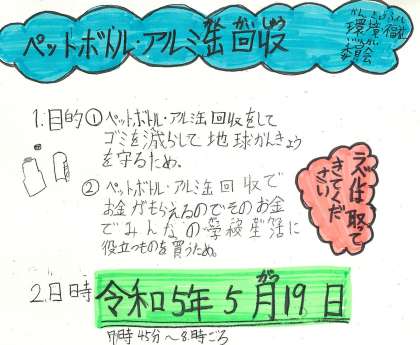 ペットボトル・アルミ缶回収
環境福祉
委員会
1.目的①ペットボトル・アルミ缶回収をして
ゴミを減らして地球かんきょう
を守るため。
②ペットボトル・アルミ缶回収で
お金がもらえるのでそのお金
でみんなの学校生活に
役立つものを買うため。
ラベルは取って
きてくだ
さい
2.日時 令和5年5月19日
7時45分～8時ごろ